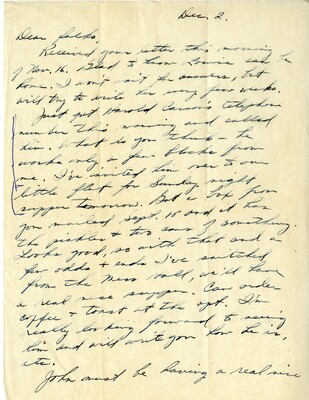 Dec. 2.
Dear folks,
Received your letter this morning
of Nov. 16. Glad to know Louise can be
home. I don't rate the answers, but
will try to write her every few weeks.
Just got Harold Carson's telephone
number this morning and called
him. What do you think - he
works only a few blocks from
me. I've invited him over to our
little flat for Sunday night
supper tomorrow. Got a box from
you mailed Sept. 15 and it has
the pickles + two cans of something.
Looks good, so with that and a
few odds + ends I've snitched
from the Mess Hall, we'll have
a real nice supper. Can order
coffee + toast at the apt. I'm
really looking forward to seeing
him and will write you how he is,
etc.
John must be having a real nice